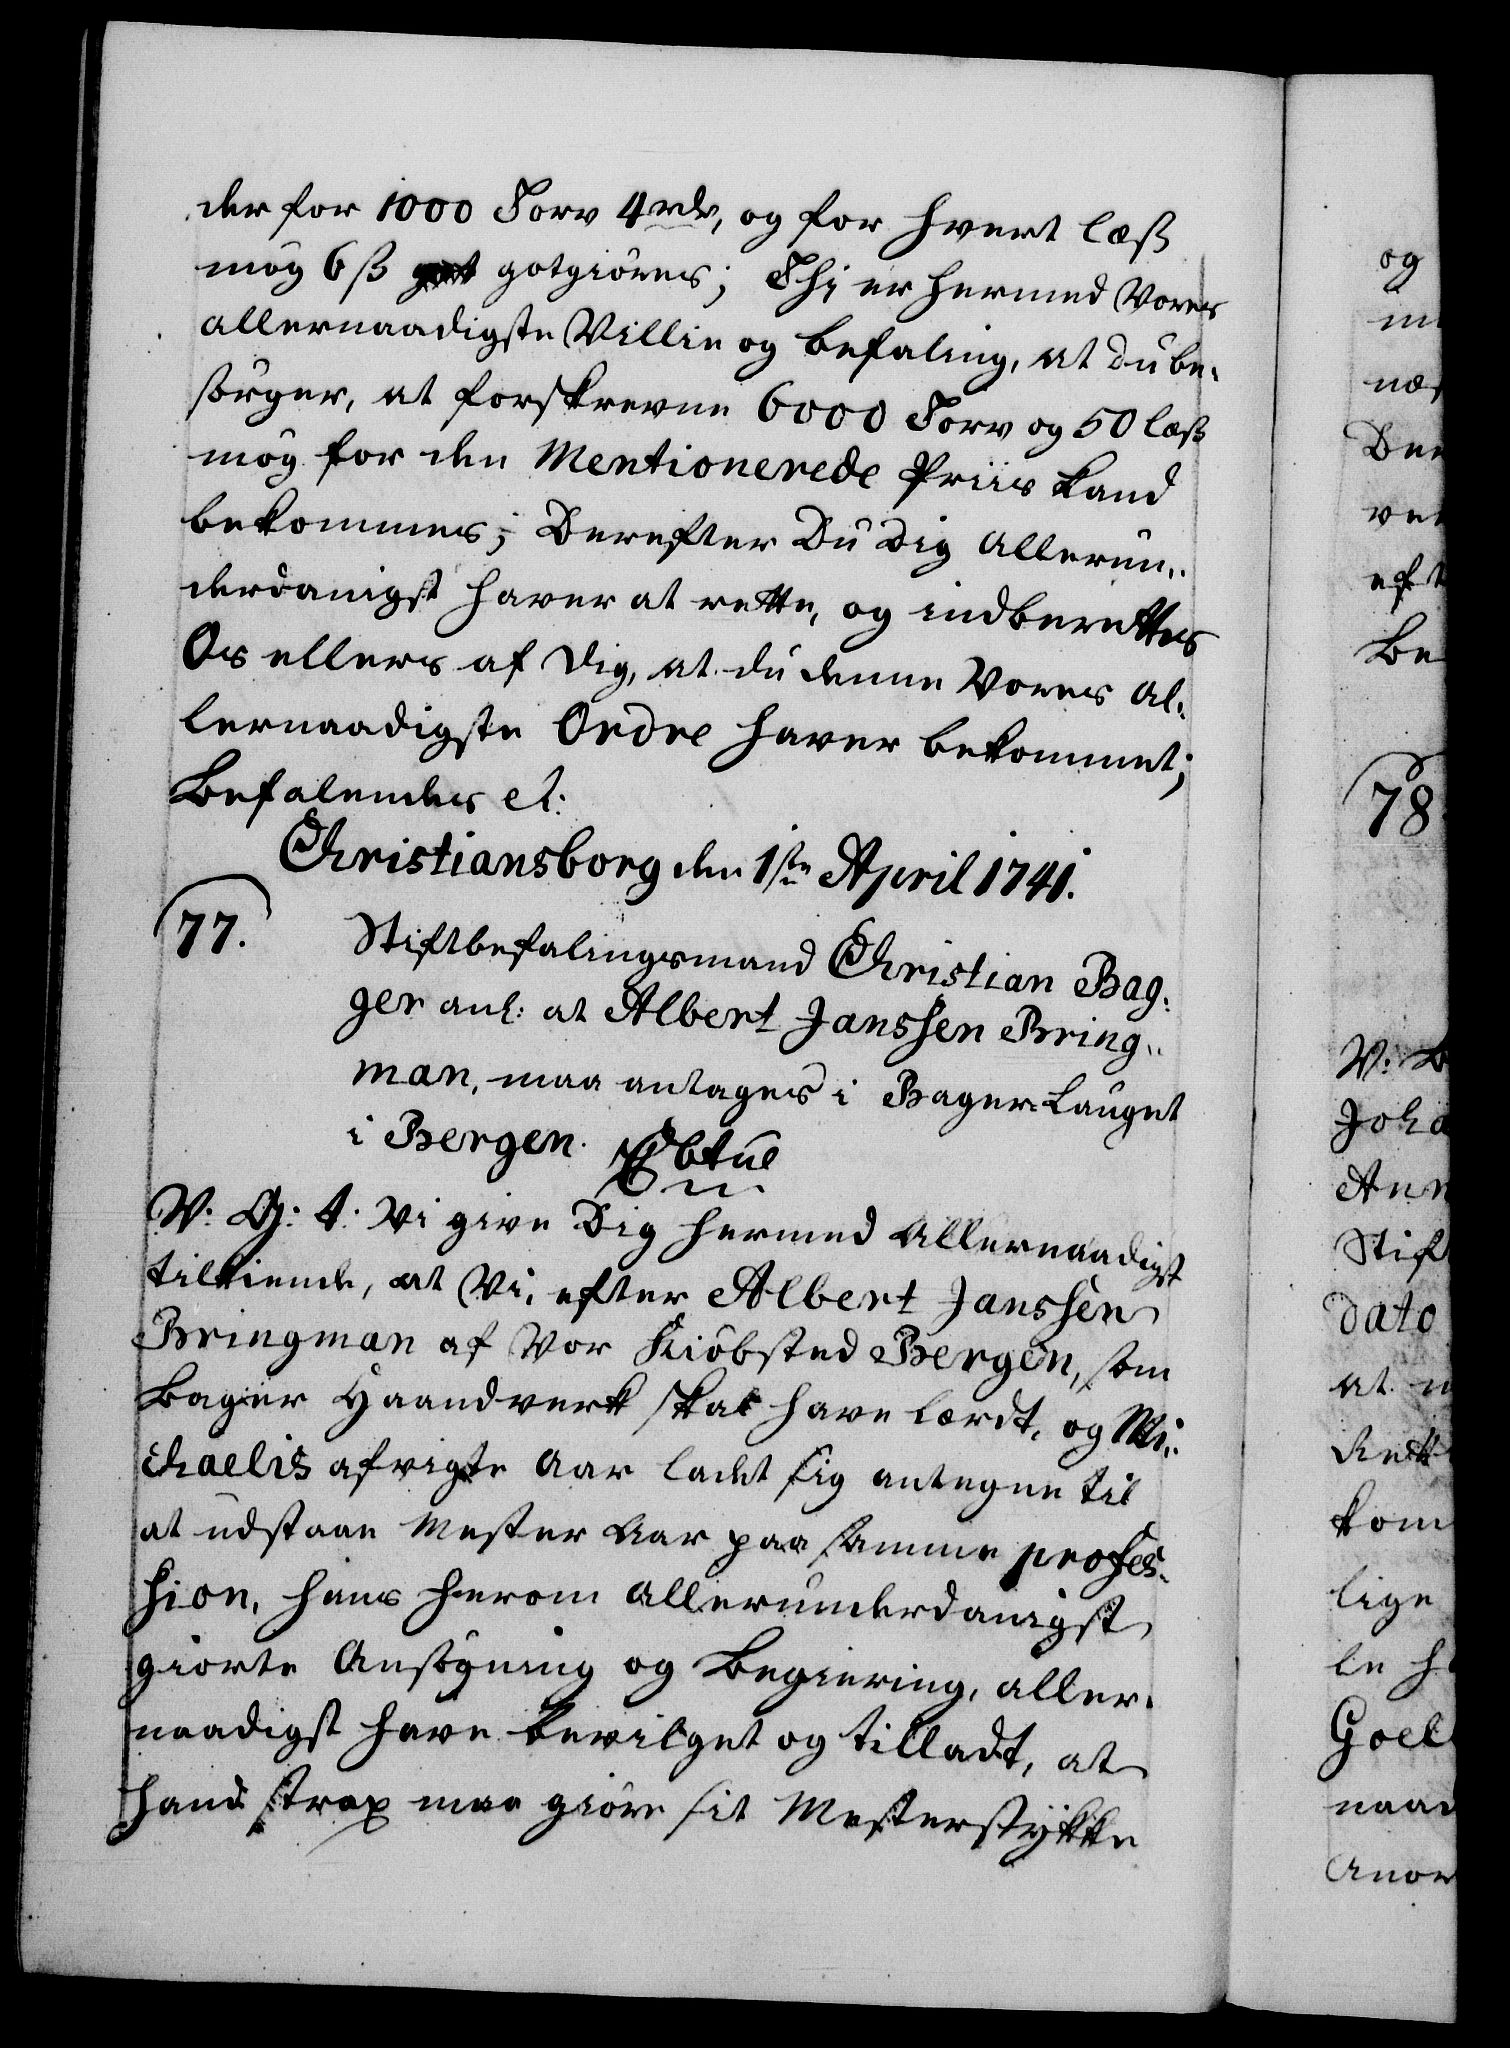 der for 1000 Torv 4 rdr, og for hvert læs
møg 6 ß gotgiøres; Thi er hermed Vores
allernaadigste Villie og befaling, at du be-
sørger, at forskrevne 6000 Torv og 50 læs
møg for den Mentionerede Priis kand
bekommes; Derefter Du Dig allerun-
derdanigst haver at rette, og indberettes
Os ellers af Dig, at du denne Vores al-
lernaadigste Ordre haver bekommet;
Befalendes et:
Christiansborg den 1ste April 1741.
77.
Stiftbefalingsmand Christian Bag-
ger anl: at Albert Janssen Bring-
man, maa antages i Bager-Lauget
i Bergen.
V: G: t: Vi give Dig hermed allernaadigst
tilkiende, at Vi, efter Albert Janssen
Bringman af Vor Kiøbsted Bergen, som
Bager Haandverk skal have lærdt, og Mi-
chaelis afvigte Aar ladet sig antegne til
at udstaae Mester Aar paa samme profes-
sion, hans herom allerunderdanigst
giorte Ansøgning og Begiering, aller-
naadigst have bevilget og tilladt, at
hand strax maa giøre sit Mesterstykke
og
78.
V:
Stif
dato
at
kom
lige
le
naad